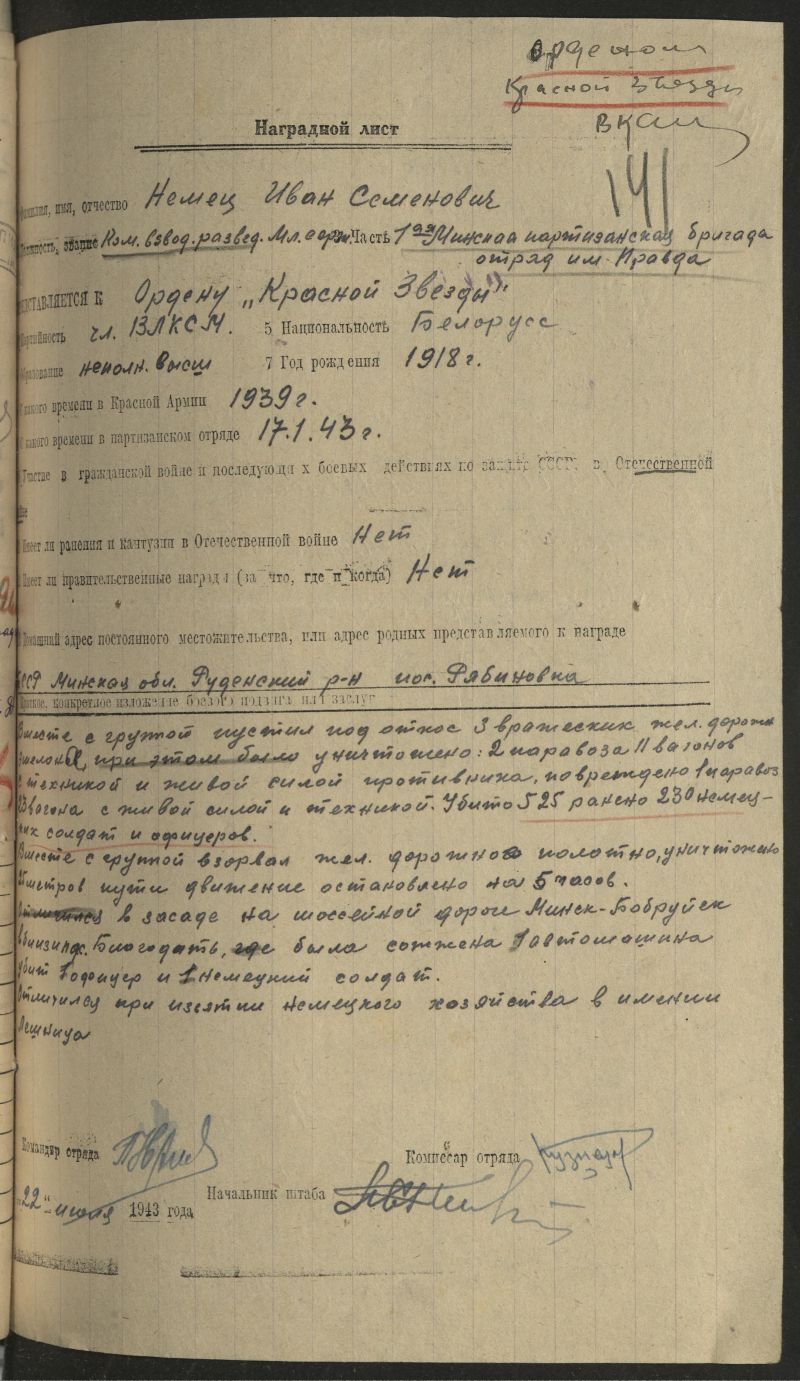 Орденом
Красной Звезды
141
Наградной лист
имя, отчество Немец Иван Семенович
звание Ком. взвод. развед. Мл. серж. Часть 1ая Минская партизанская бригада
отряд им. Правда
К Ордену „Красной Звезды"
чл. ВЛКСМ. 5 Национальность Белорусс
неполн. высш 7 Год рождения 1918 г.
времени в Красной Армии 1939 г.
какого времени в партизанском отряде 17.1.43 г.
Участие в гражданской войне и последующих боевых действиях по защите СССР, в Отечественной
Имеет ли ранения и кантузии в Отечественной войне Нет
Имеет ли правительственные награды (за что, где и когда) Нет
Домашний адрес постоянного местожительства, или адрес родных представляемого к награде
БССР Минская обл. Руденский р-н пос. Рябиновка
конкретное изложение боевого подвига или заслуг
Вместе с группой пустил под откос 3 вражеских жел. дорожн
при этом было уничтожено: 2 паровоза 11 вагонов
с техникой и живой силой противника, повреждено 1 паровоз
вагона с живой силой и техникой. Убито 525 ранено 230 немец-
ких солдат и офицеров.
Вместе с группой взорвал жел. дорожное полотно, уничтожено
метров пути движение остановлено на 5 часов.
Отличился в засаде на шоссейной дороги Минск-Бобруйск
Благодать, где была сожжена 1 автомашина
убит 1 офицер и 1 немецкий солдат.
Отличился при изъятии немецкого хозяйства в имении
Лешница
Командир отряда Комиссар отряда
Начальник штаба
„22" июля 1943 года